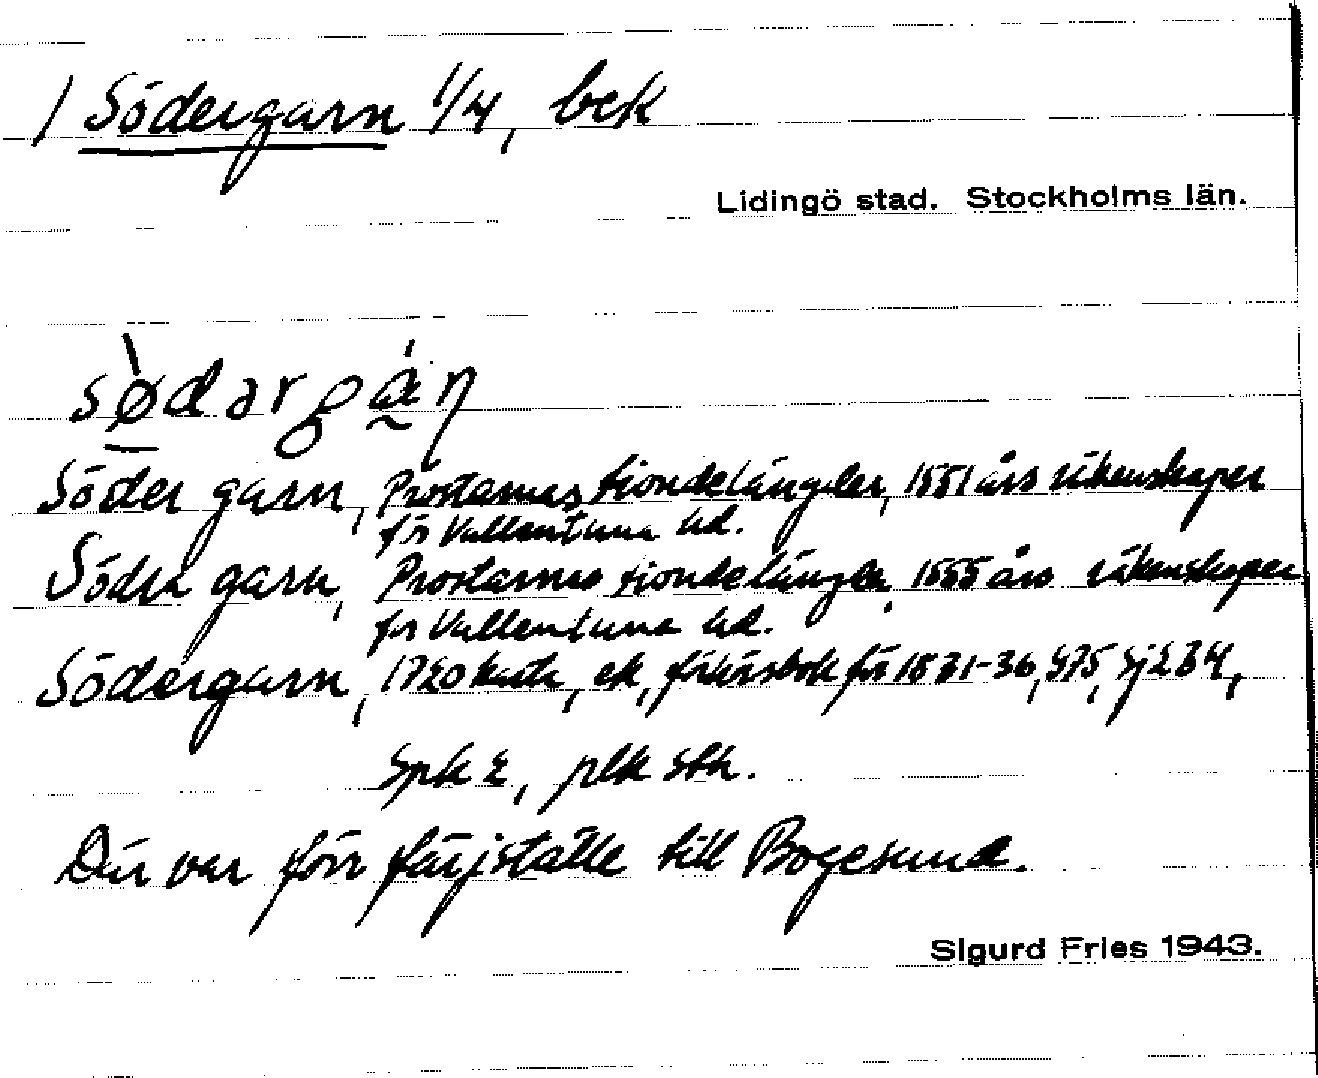 / Södergarn 1/4, bek
Lidingö stad. Stockholms län.
sødərgạ̊ɳ
Söder garn, Prostarnas tiondelängder, 1551 års räkenskaper
för Vallentuna hd.
Söder garn, Prostarnas tiondelängder, 1555 års räkenskaper
för Vallentuna hd.
Södergarn, 1720 karta, ek, förhörsbok för 1831-36, S75, Sj 234,
Spk 2, plk sth.
Där var förr färjställe till Bogesund.
Sigurd Fries 1943.